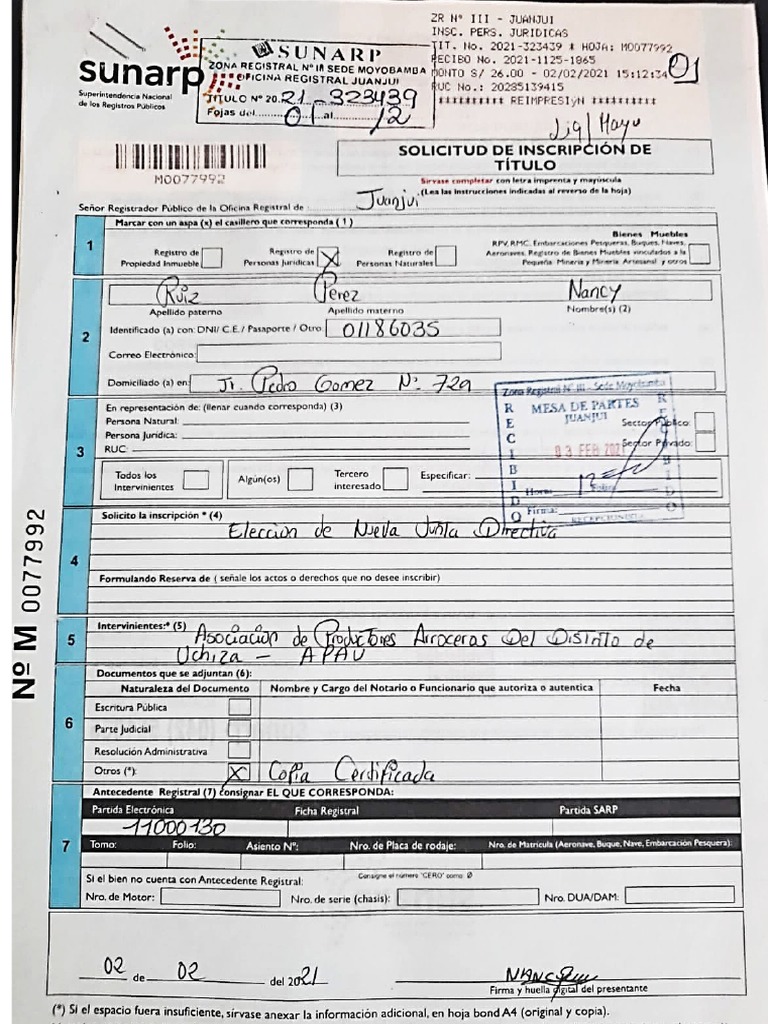 sunarp
Superintendencia Nacional
de los Registros Públicos
SUNARP
ZONA REGISTRAL Nº III SEDE MOYOBAMBA
OFICINA REGISTRAL JUANJUI
TÍTULO Nº 20 21-323439
Fojas del 01 al 12
ZR Nº III - JUANJUI
INSC. PERS. JURIDICAS
TIT. No. 2021-323439 * HOJA: M0077992
RECIBO No. 2021-1125-1865
MONTO S/ 26.00 - 02/02/2021 15:12:34
RUC No.: 20285139415
********** REIMPRESIÓN **********
01
M0077992
SOLICITUD DE INSCRIPCIÓN DE
TÍTULO
Sírvase completar con letra imprenta y mayúscula
(Lea las instrucciones indicadas al reverso de la hoja)
Señor Registrador Público de la Oficina Registral de Juanjui
1
Marcar con un aspa (x) el casillero que corresponda ( 1 )
Registro de
Propiedad Inmueble
Registro de
Personas Jurídicas X
Registro de
Personas Naturales
Bienes Muebles
RPV, RMC, Embarcaciones Pesqueras, Buques, Naves,
Aeronaves, Registro de Bienes Muebles vinculados a la
Pequeña Minería y Minería Artesanal y otros
2
Ruiz Perez Nancy
Apellido paterno Apellido materno Nombre(s) (2)
Identificado (a) con: DNI/ C.E./ Pasaporte / Otro: 01186035
Correo Electrónico:
Domiciliado (a) en: Jr. Pedro Gomez Nº 729
3
En representación de: (llenar cuando corresponda) (3)
Persona Natural:
Persona Jurídica:
RUC:
Sector Público:
Sector Privado:
Zona Registral Nº III - Sede Moyobamba
MESA DE PARTES
JUANJUI
RECIBIDO
03 FEB 2021
Hora:
Folios
Firma:
RECEPCIONISTA
Todos los
Intervinientes
Algún(os)
Tercero
interesado
Especificar:
4
Solicito la inscripción * (4)
Eleccion de Nueva Junta Directiva
Formulando Reserva de ( señale los actos o derechos que no desee inscribir)
5
Intervinientes:* (5) Asociacion de Productores Arroceros Del Distrito de
Uchiza - APAU
6
Documentos que se adjuntan (6):
Naturaleza del Documento Nombre y Cargo del Notario o Funcionario que autoriza o autentica Fecha
Escritura Pública
Parte Judicial
Resolución Administrativa
Otros (*): X Copia Certificada
7
Antecedente Registral (7) consignar EL QUE CORRESPONDA:
Partida Electrónica Ficha Registral Partida SARP
11000130
Tomo: Folio: Asiento Nº: Nro. de Placa de rodaje: Nro. de Matrícula (Aeronave, Buque, Nave, Embarcación Pesquera):
Si el bien no cuenta con Antecedente Registral:
Consigne el número "CERO" como Ø
Nro. de Motor: Nro. de serie (chasis): Nro. DUA/DAM:
Nº M 0077992
02 de 02 del 2021
Firma y huella digital del presentante
(*) Si el espacio fuera insuficiente, sírvase anexar la información adicional, en hoja bond A4 (original y copia).